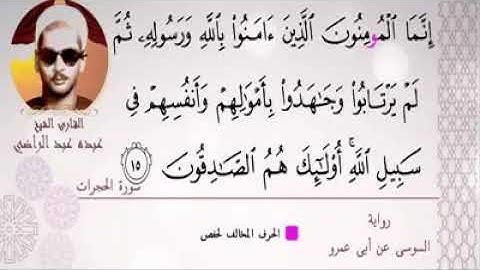 إِنَّمَا الْمُومِنُونَ الَّذِينَ ءَامَنُوا بِاللَّهِ وَرَسُولِهِ ثُمَّ
لَمْ يَرْتَابُوا وَجَٰهَدُوا بِأَمْوَٰلِهِمْ وَأَنفُسِهِمْ فِي
سَبِيلِ اللَّهِ أُوْلَٰٓئِكَ هُمُ الصَّٰدِقُونَ ١٥
القارئ الشيخ
عبده عبد الراضي
سورة الحجرات
رواية
السوسى عن أبى عمرو
الحرف المخالف لحفص